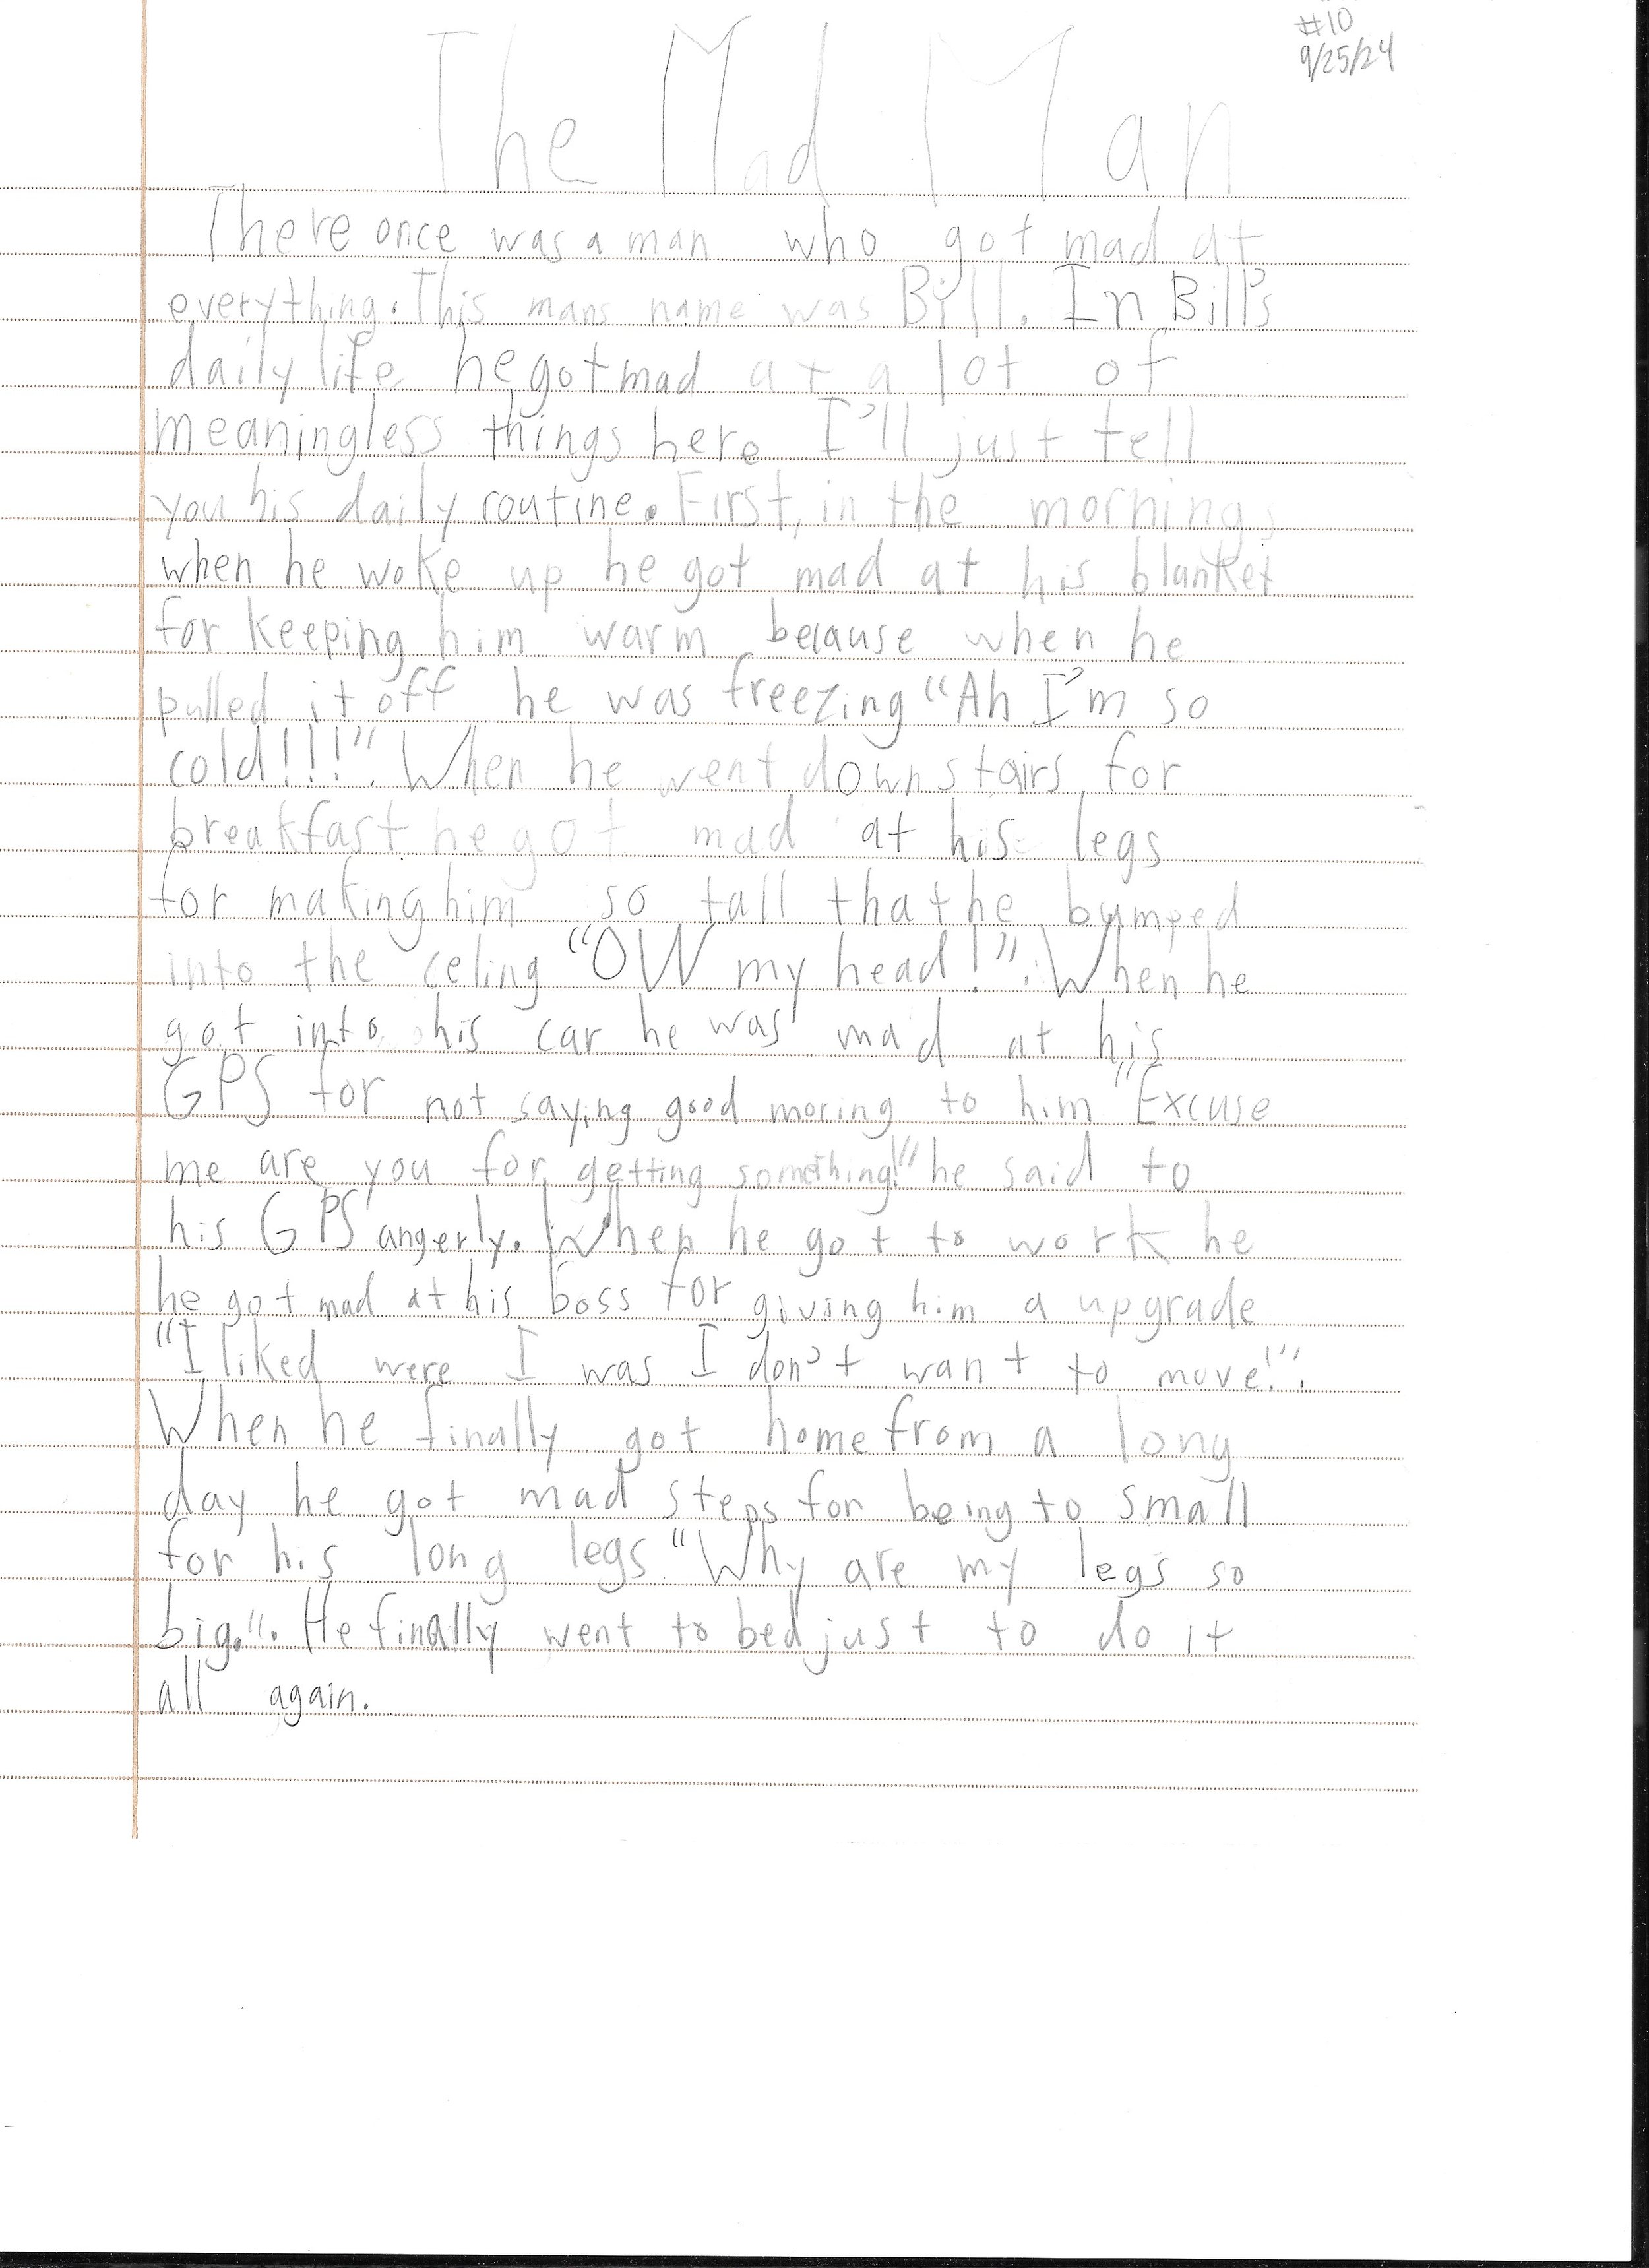 #10
9/25/24
The Mad Man
There once was a man who got mad at
everything. This mans name was Bill. In Bill's
daily life he got mad at a lot of
meaningless things here I'll just tell
you his daily routine. First, in the morning,
when he woke up he got mad at his blanket
for keeping him warm because when he
pulled it off he was freezing "Ah I'm so
cold!!!". When he went downstairs for
breakfast he got mad at his legs
for making him so tall that he bumped
into the celing "OW my head!". When he
got into his car he was mad at his
GPS for not saying good moring to him "Excuse
me are you for getting something!" he said to
his GPS angerly. When he got to work he
he got mad at his boss for giving him a upgrade
"I liked were I was I don't want to move!".
When he finally got home from a long
day he got mad steps for being to small
for his long legs "Why are my legs so
big.". He finally went to bed just to do it
all again.